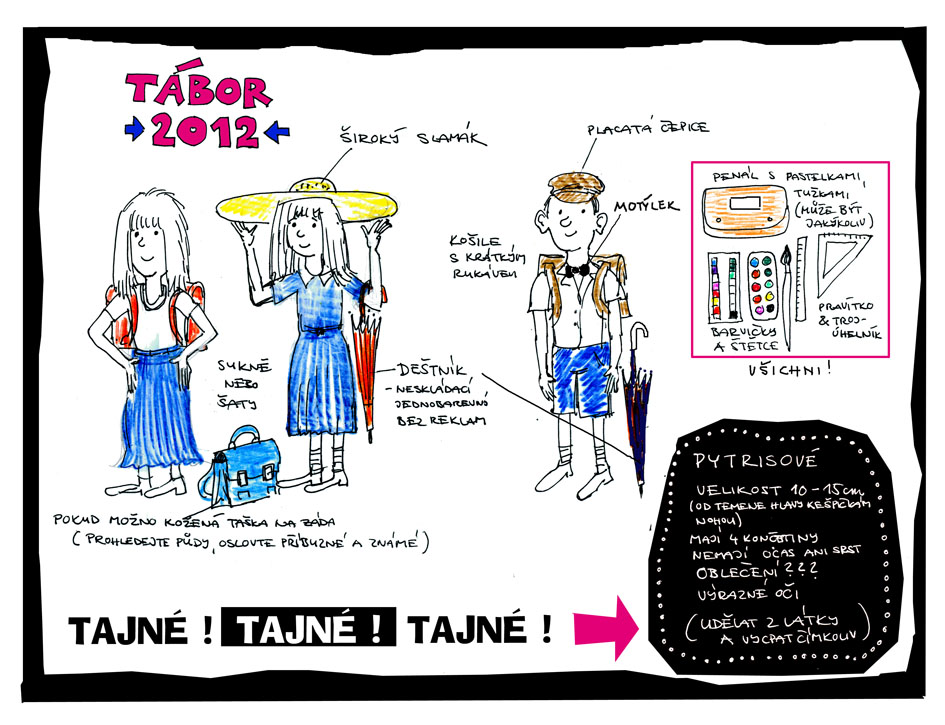 TÁBOR
2012
ŠIROKÝ SLAMÁK
PLACATÁ ČEPICE
MOTÝLEK
KOŠILE
S KRÁTKÝM
RUKÁVEM
PENÁL S PASTELKAMI,
TUŽKAMI
(MŮŽE BÝT
JAKÝKOLIV)
BARVIČKY
A ŠTĚTCE
PRAVÍTKO
& TROJ-
ÚHELNÍK
VŠICHNI!
SUKNĚ
NEBO
ŠATY
DEŠTNÍK
- NESKLÁDACÍ
JEDNOBAREVNÝ
BEZ REKLAM
POKUD MOŽNO KOŽENÁ TAŠKA NA ZÁDA
(PROHLEDEJTE PŮDY, OSLOVTE PŘÍBUZNÉ A ZNÁMÉ)
PYTRISOVÉ
VELIKOST 10-15cm
(OD TEMENE HLAVY KE ŠPIČKÁM
NOHOU)
MAJÍ 4 KONČETINY
NEMAJÍ OCAS ANI SRST
OBLEČENÍ???
VÝRAZNÉ OČI
(UDĚLAT Z LÁTKY
A VYCPAT ČÍMKOLIV)
TAJNÉ! TAJNÉ! TAJNÉ!